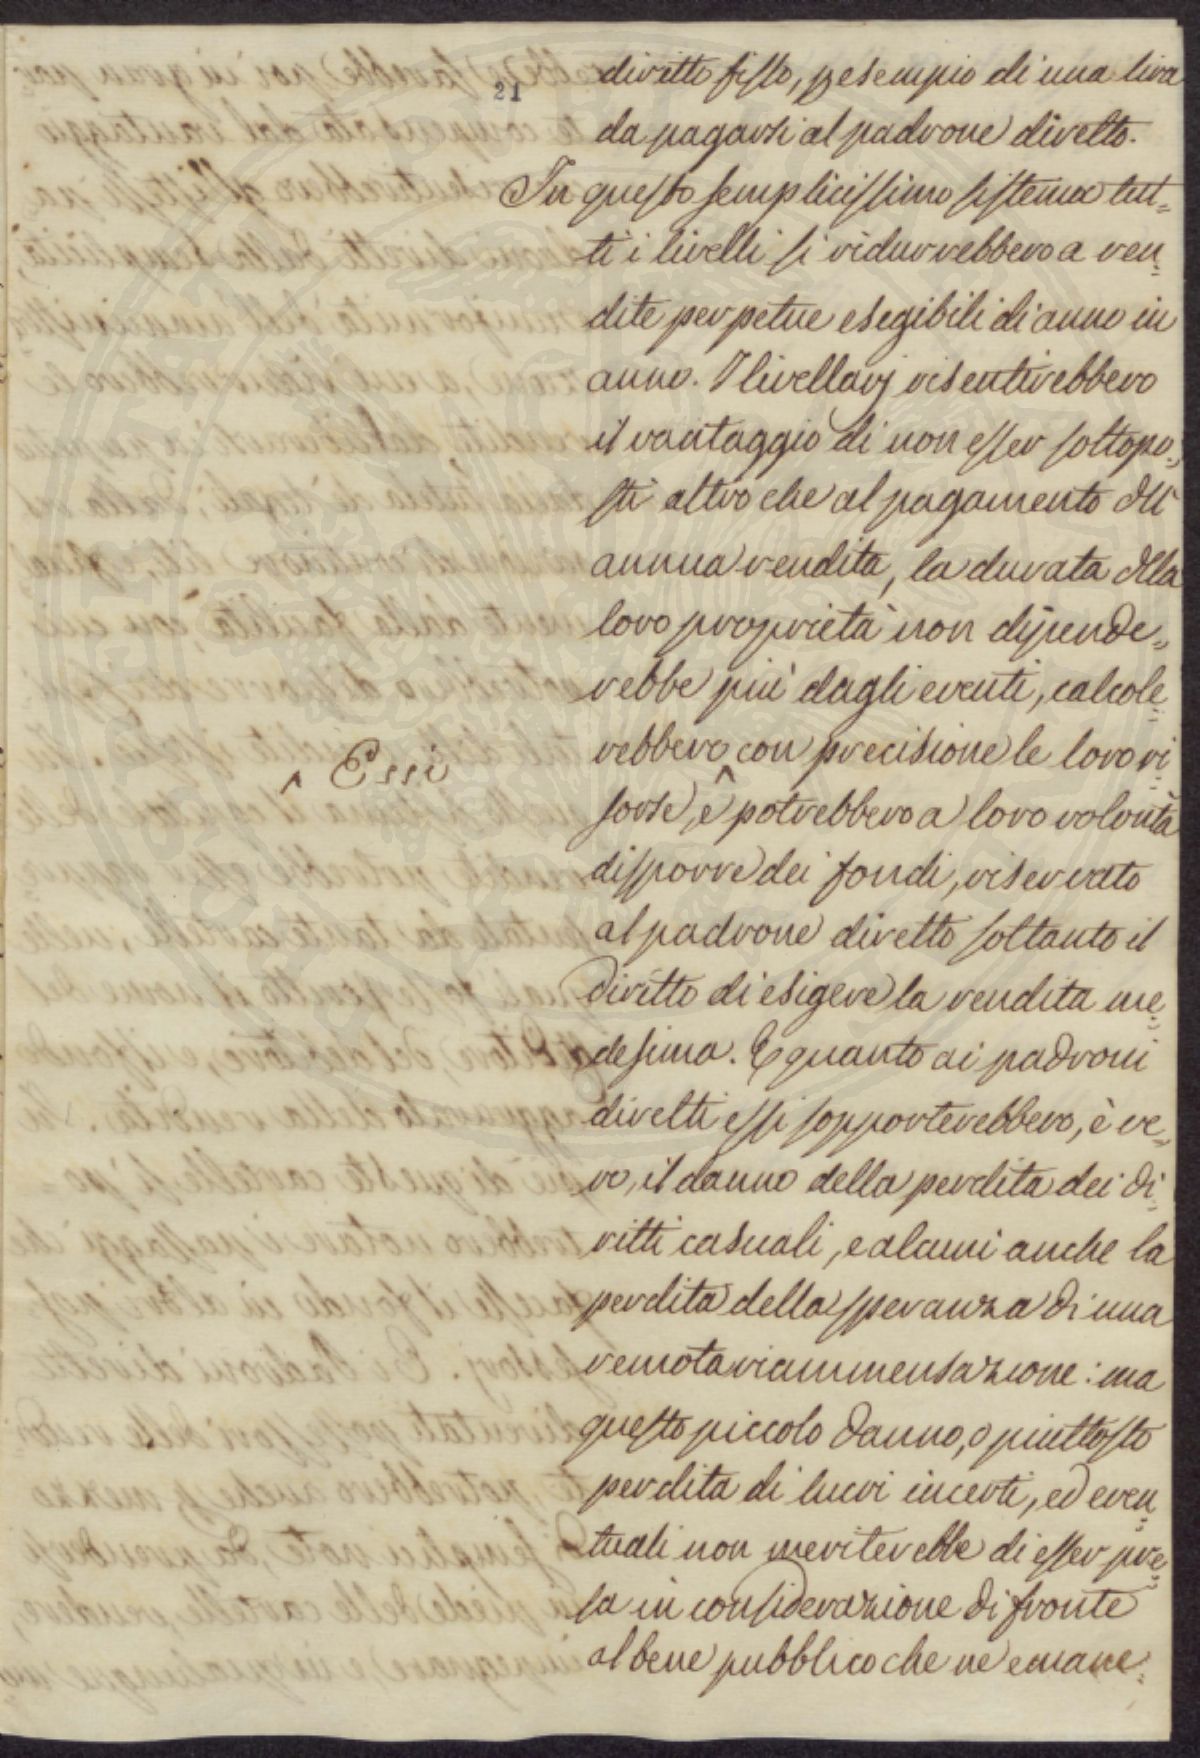 21
diritto fisso, p esempio di una lira
da pagarsi al padrone diretto.
In questo semplicissimo sistema tut=
ti i livelli si ridurrebbero a ren=
dite perpetue esegibili di anno in
anno. I livellarj risentirebbero
il vantaggio di non esser sottopo=
sti altro che al pagamento dell'
annua rendita, la durata della
loro proprietà non dipende=
rebbe più dagli eventi, calcole=
rebbero con precisione le loro ri=
^ Essi
sorse, e ^ potrebbero a loro volontà
disporre dei fondi, riservato
al padrone diretto soltanto il
diritto di esigere la rendita me=
desima. E quanto ai padroni
diretti essi sopporterebbero, è ve=
ro, il danno della perdita dei di=
ritti casuali, e alcuni anche la
perdita della speranza di una
remota riammensazione: ma
questo piccolo danno, o piuttosto
perdita di lucri incerti, ed even=
tuali non meriterebbe di esser pre=
sa in considerazione di fronte
al bene pubblico che ne emane=